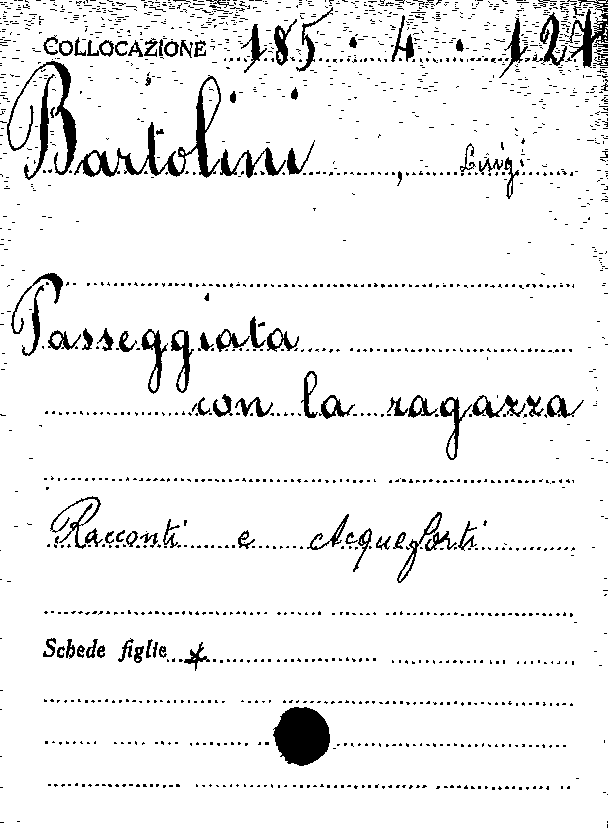 COLLOCAZIONE 185 . 4 . 127
Bartolini , Luigi
Passeggiata
con la ragazza
Racconti e Acqueforti
Schede figlie *